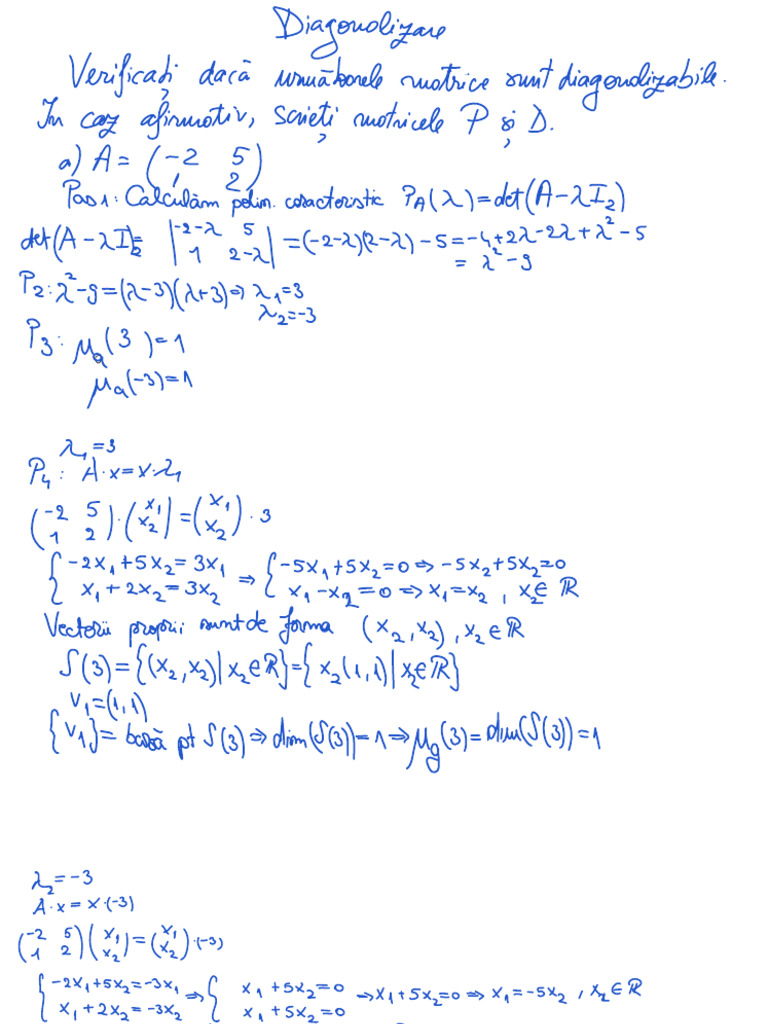 Diagonalizare
Verificați dacă următoarele matrice sunt diagonalizabile.
În caz afirmativ, scrieți matricele P și D.
a) A = (-2 5
1 2)
Pas 1: Calculăm polin. caracteristic P_A(λ) = det(A - λI₂)
det(A - λI₂) = |-2-λ 5
1 2-λ| = (-2-λ)(2-λ) - 5 = -4 + 2λ - 2λ + λ² - 5
= λ² - 9
P2: λ² - 9 = (λ-3)(λ+3) ⇒ λ₁ = 3
λ₂ = -3
P3: μₐ(3) = 1
μₐ(-3) = 1
λ₁ = 3
P4: A·x = x·λ₁
(-2 5
1 2)·(x₁
x₂) = (x₁
x₂)·3
{-2x₁ + 5x₂ = 3x₁
x₁ + 2x₂ = 3x₂ ⇒ {-5x₁ + 5x₂ = 0 ⇒ -5x₂ + 5x₂ = 0
x₁ - x₂ = 0 ⇒ x₁ = x₂, x₂ ∈ ℝ
Vectorii proprii sunt de forma (x₂, x₂), x₂ ∈ ℝ
S(3) = {(x₂, x₂) | x₂ ∈ ℝ} = {x₂(1,1) | x₂ ∈ ℝ}
v₁ = (1,1)
{v₁} = bază pt S(3) ⇒ dim(S(3)) = 1 ⇒ μg(3) = dim(S(3)) = 1
λ₂ = -3
A·x = x·(-3)
(-2 5
1 2)(x₁
x₂) = (x₁
x₂)·(-3)
{-2x₁ + 5x₂ = -3x₁
x₁ + 2x₂ = -3x₂ ⇒ {x₁ + 5x₂ = 0
x₁ + 5x₂ = 0 ⇒ x₁ + 5x₂ = 0 ⇒ x₁ = -5x₂, x₂ ∈ ℝ